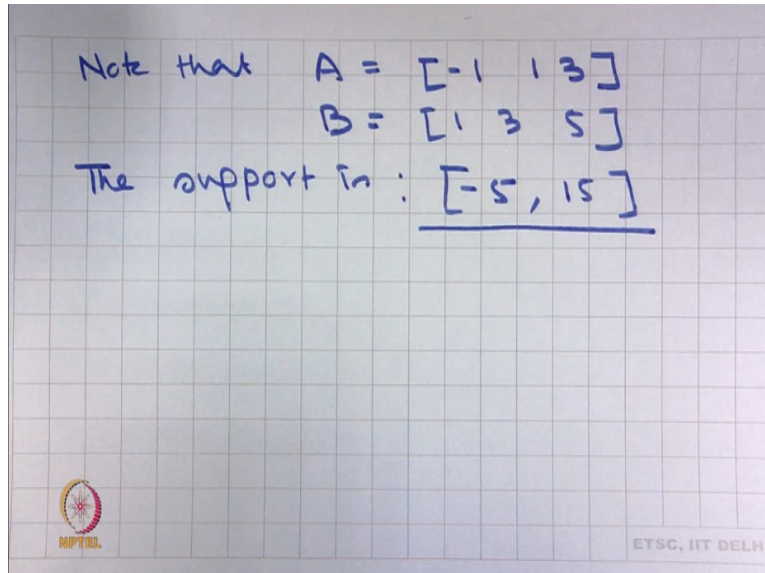 Note that A = [-1 1 3]
B = [1 3 5]
The support in : [-5, 15]
NPTEL
ETSC, IIT DELH